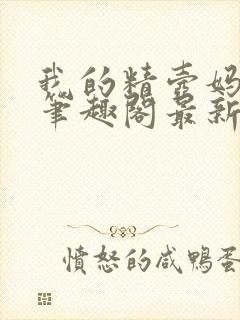 我的精壶妈
笔趣阁最新
憤怒的咸鴨蛋